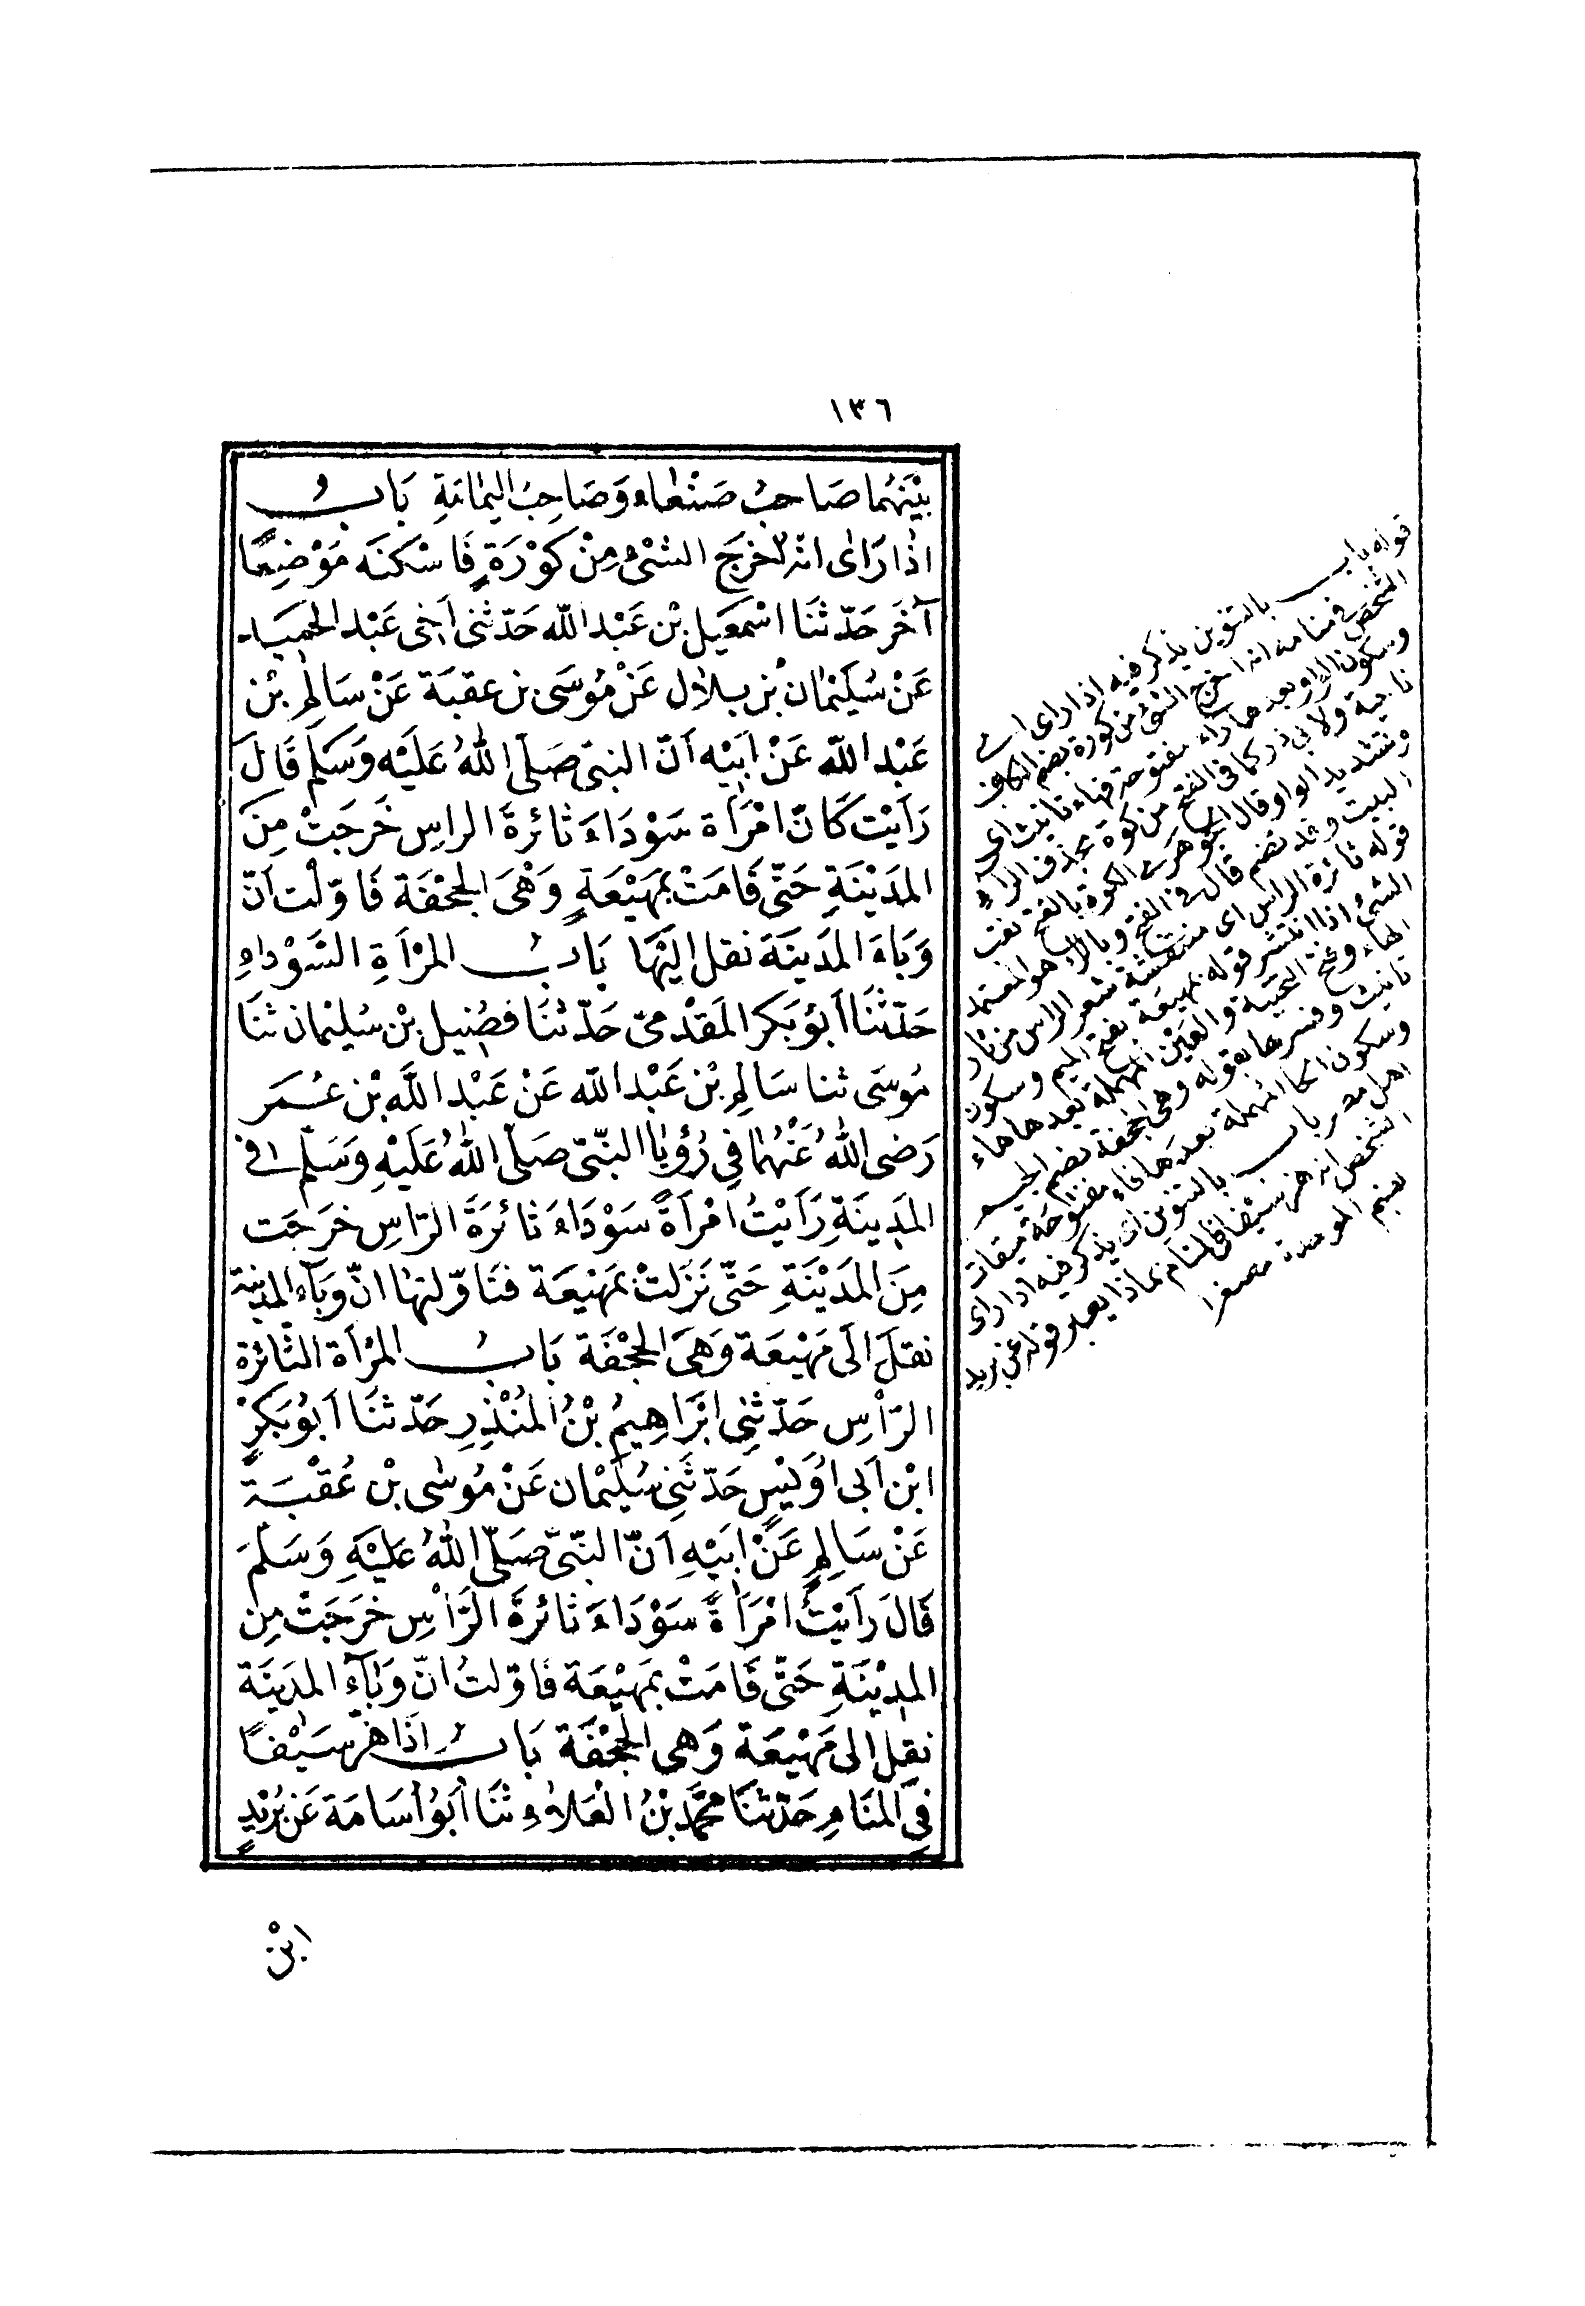 ١٣٦
بَيْنَهُمَا صَاحِبُ صَنْعَاءَ وَصَاحِبُ الْيَمَامَةِ بَابُ
اذَا رَأى انّه اَخرَجَ الشئ مِنْ كَوْرَةٍ فَاسْكَنَه مَوْضِعًا
آخَرَ حَدّثَنَا اسْمعِيل بْن عَبْد الله حَدّثنى أخِى عَبْد الحَميد
عَنْ سُلَيْمَان بْن بِلَال عَنْ مُوسَى بن عقبَة عَنْ سَالِم بْن
عَبْد الله عَنْ اَبِيْه اَنّ النبىّ صَلّى اللهُ عَلَيْه وَسَلّم قَالَ
رَأيْت كَانّ امْرأة سَوْدَاءَ ثائرةَ الراسِ خَرَجَتْ مِنَ
المَدِيْنَةِ حَتّى قَامَتْ بمَهيَعَةٍ وَهْىَ الجحْفَة فَاوّلْت اَنّ
وَبَاءَ المَدِينَة نقل اِلَيْهَا بَابُ المرْأَةِ السَّوْدَاءِ
حَدّثنَا أَبُو بَكر المقَدّمىّ حَدّثنَا فضَيل بْن سُلَيْمان ثنَا
مُوسَى ثنا سَالِم بْن عَبْد الله عَنْ عَبْد اللَّه بْن عُمَر
رَضى اللهُ عَنْهُمَا فِي رُؤيَا النّبىّ صَلّى اللهُ عَلَيْهِ وَسَلّم فى
المَدِينَةِ رَأيْتُ امْرأةً سَوْدَاءَ ثائرَةَ الرّاسِ خَرجَت
مِنَ المَدِيْنَةِ حَتّى نَزَلَتْ بمَهْيَعَة فتَاوّلتهَا انّ وَبَآءَ المدِينة
نقلَ الَى مَهْيَعَة وَهىَ الجحْفَة بَابُ المرْأة الثّائرة
الرّأسِ حَدّثنِى ابْرَاهِيمُ بْنُ المُنْذِرِ حَدّثنَا أبُو بَكرِ
ابْن اَبى اُوَيْسٍ حَدّثَنِى سُلَيْمان عَنْ مُوسى بْن عُقْبَة
عَنْ سَالِمٍ عَنْ ابِيْهِ اَنّ النّبىّ صَلّى اللهُ عَلَيْهِ وَسَلّمَ
قَالَ رَأَيْتُ امْرَأةً سَوْدَاءَ ثائرةَ الرّأسِ خَرَجَتْ مِن
المدِيْنَةِ حَتّى قَامَتْ بمَهيْعَة فَاوّلتُ انّ وَبَآءَ المدينَة
نقل الى مَهْيَعَة وَهى الجحْفَة بَابُ اذَا هَزّ سَيْفًا
فِى المنَامِ حَدّثنَا مُحمَّد بْنُ العَلَاءِ ثنَا أبُو أُسَامَة عَن بُرَيْدٍ
قوله باب بالتنوين يذكر فيه اذا راى
الشخص فى منامه انه اخرج الشئ من كورة بضم الكاف
وسكون الواو بعدها راء مفتوحة فهاء تانيث اى
ناحية ولابى ذر كما فى الفتح من كوة بحذف الراء
وتشديد الواو قال الجوهرى الكوة بالفتح نقب
البيت وقد تضم قال فى الفتح وبالراء هو المعتمد
قوله ثائرة الراس اى منتفشة شعر الراس من ثار
الشئ اذا انتشر قوله بمهيعة بفتح الميم وسكون
الهاء وفتح التحتية والعين المهملة بعدها هاء
تانيث وفسرها بقوله وهى الجحفة بضم الجيم
وسكون الحا المهملة بعدها فاء مفتوحة ميقات
اهل مصر باب بالتنوين يذكر فيه اذا راى
الشخص انه هز سيفا فى المنام بماذا يعبر قوله عن بريد
بضم الموحدة مصغرا
ابْن